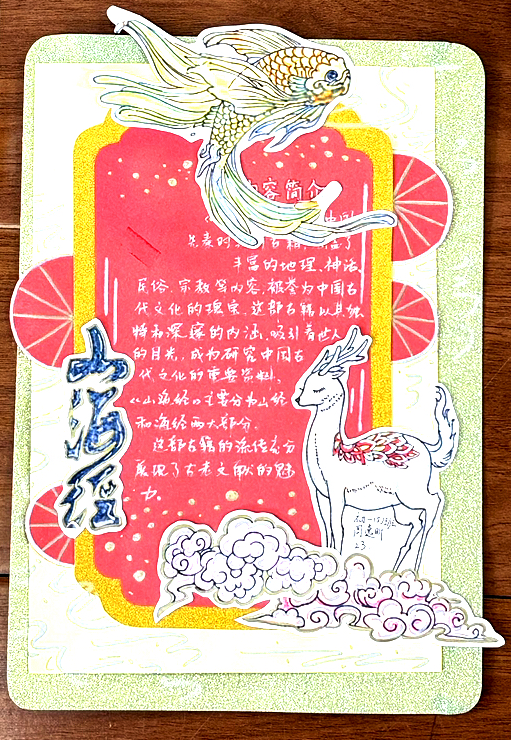 内容简介
先秦时 古籍
丰富的地理、神话、
民俗、宗教等内容,被誉为中国古
代文化的瑰宝。这部古籍以其独
特和深邃的内涵,吸引着世人
的目光,成为研究中国古
代文化的重要资料。
《山海经》主要分为山经
和海经两大部分。
这部古籍的流传充分
展现了古老文献的魅
力。
山海经